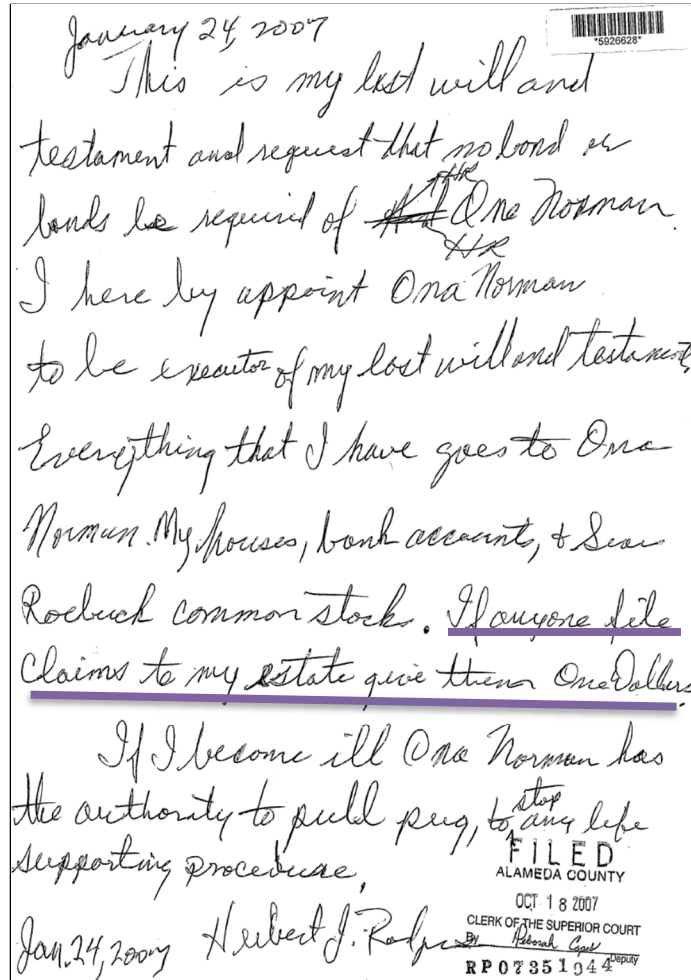 January 24, 2007
*5926628*
This is my last will and
testament and request that no bond or
HR
bonds be required of Ona Norman.
HR
I here by appoint Ona Norman
to be executor of my last will and testament,
Everything that I have goes to Ona
Norman. My houses, bank accounts, & Sears
Roebuck common stocks. If anyone file
Claims to my estate give them One Dollars.
If I become ill Ona Norman has
the authority to pull pug, to stop any life
supporting procedure,
FILED
ALAMEDA COUNTY
OCT 18 2007
CLERK OF THE SUPERIOR COURT
By Deborah Deputy
RP07351044
Jan. 24, 2007 Herbert J.